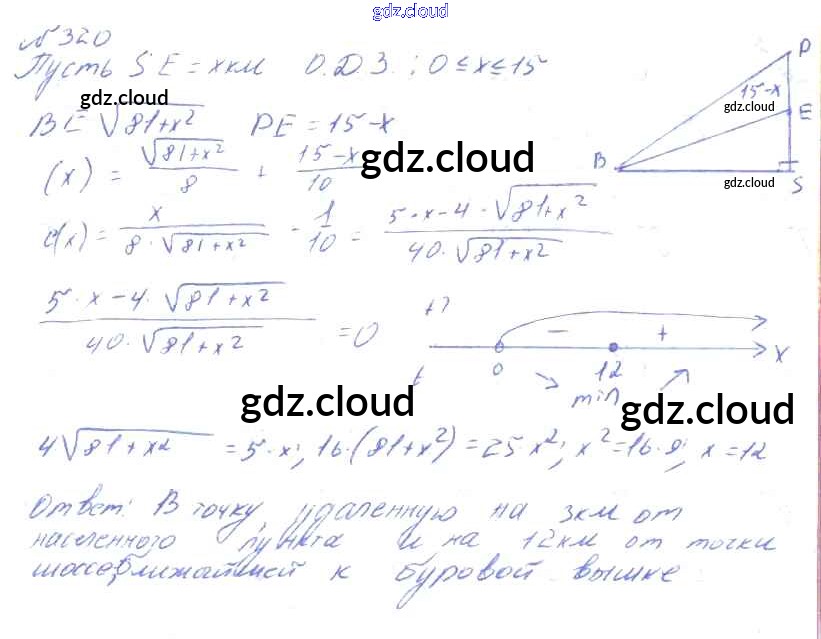 gdz.cloud
№320
Пусть SE = x км О.Д.З.: 0 ≤ x ≤ 15
gdz.cloud
BE √81+x² PE = 15-x
(x) = √81+x² / 8 + 15-x / 10
gdz.cloud
(x) = x / 8·√81+x² - 1/10 = 5·x-4·√81+x² / 40·√81+x²
5·x-4·√81+x² / 40·√81+x² = 0
P
15-x
gdz.cloud
E
B
gdz.cloud
S
- +
0 12 x
min
gdz.cloud
gdz.cloud
4√81+x2 = 5·x; 16·(81+x²) = 25x²; x²=16·9; x=12
Ответ: В точку, удаленную на 3км от
населенного пункта и на 12км от точки
шоссе, ближайшей к буровой вышке